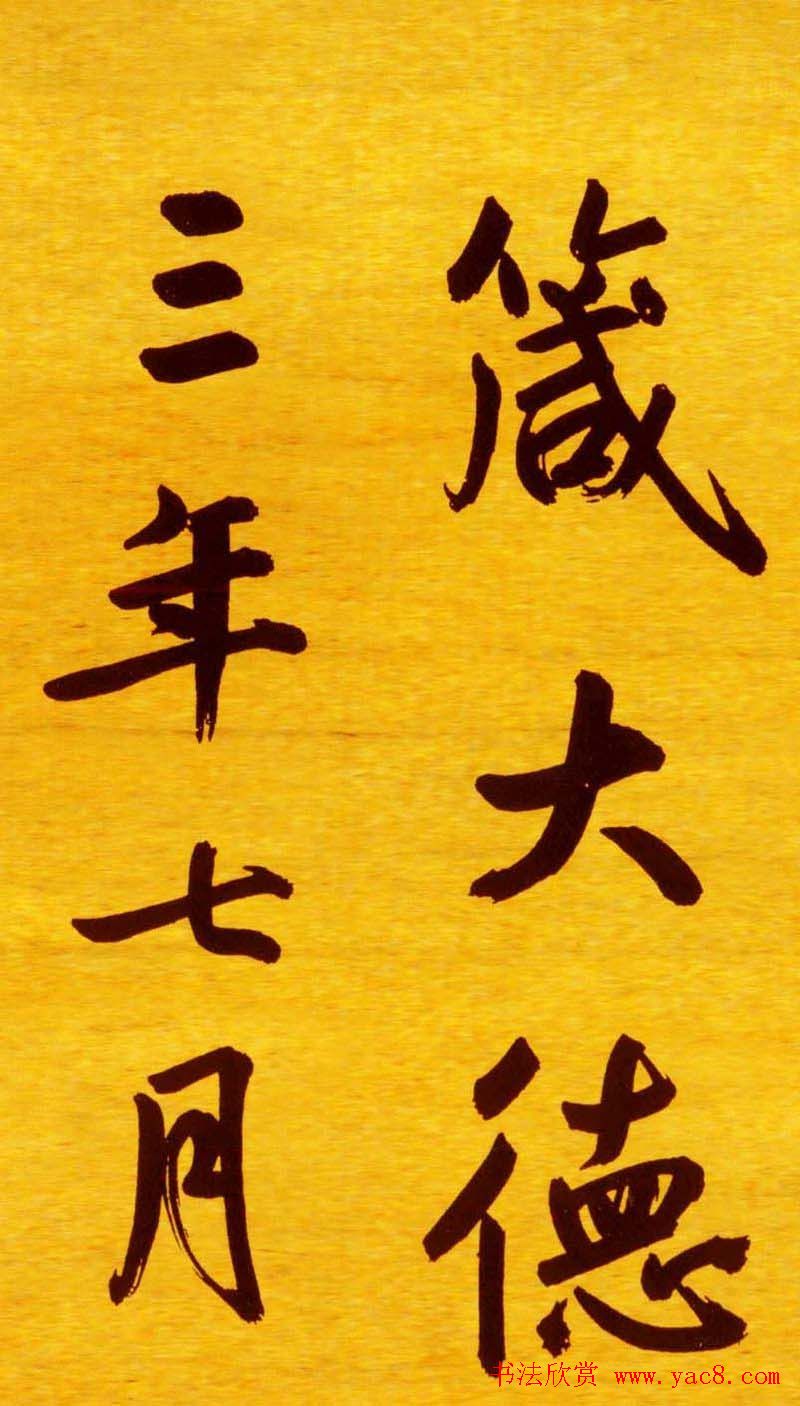 箴大德
三年七月
书法欣赏 www.yac8.com